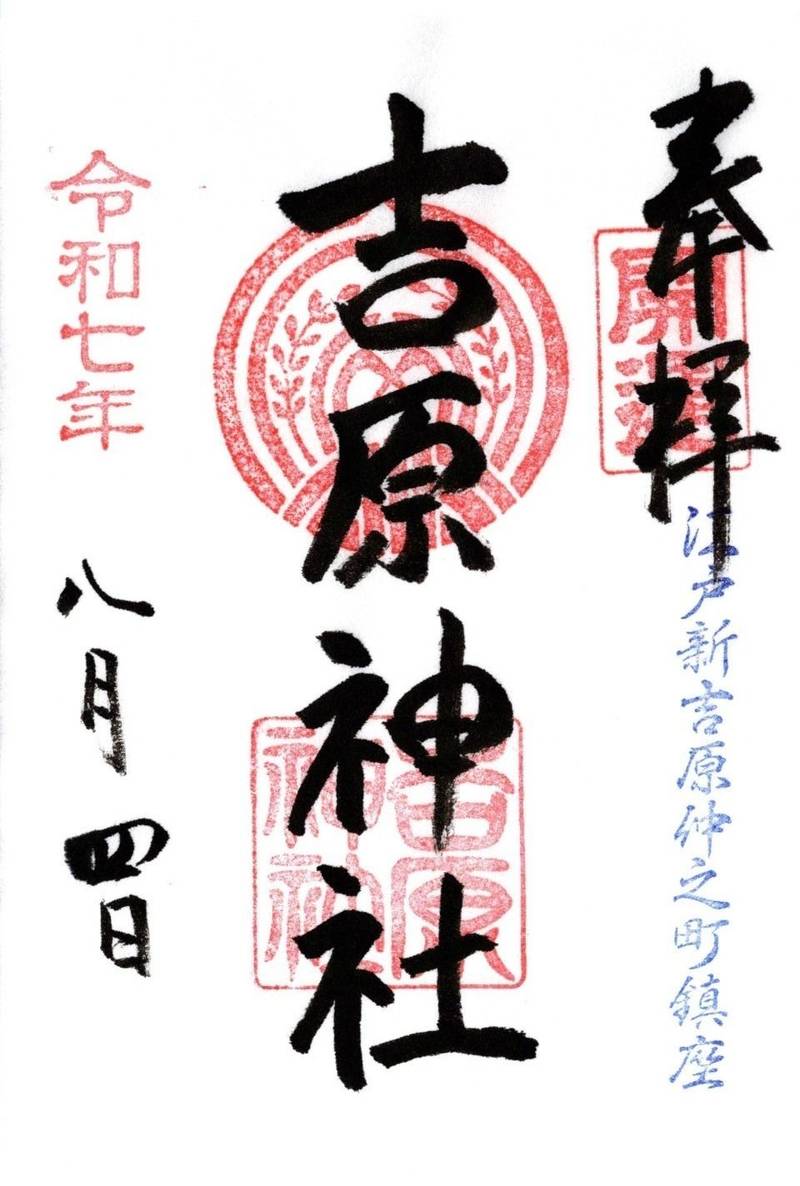 奉拝
開運
江戸新吉原仲之町鎮座
吉原神社
吉原
神社
令和七年
八月四日